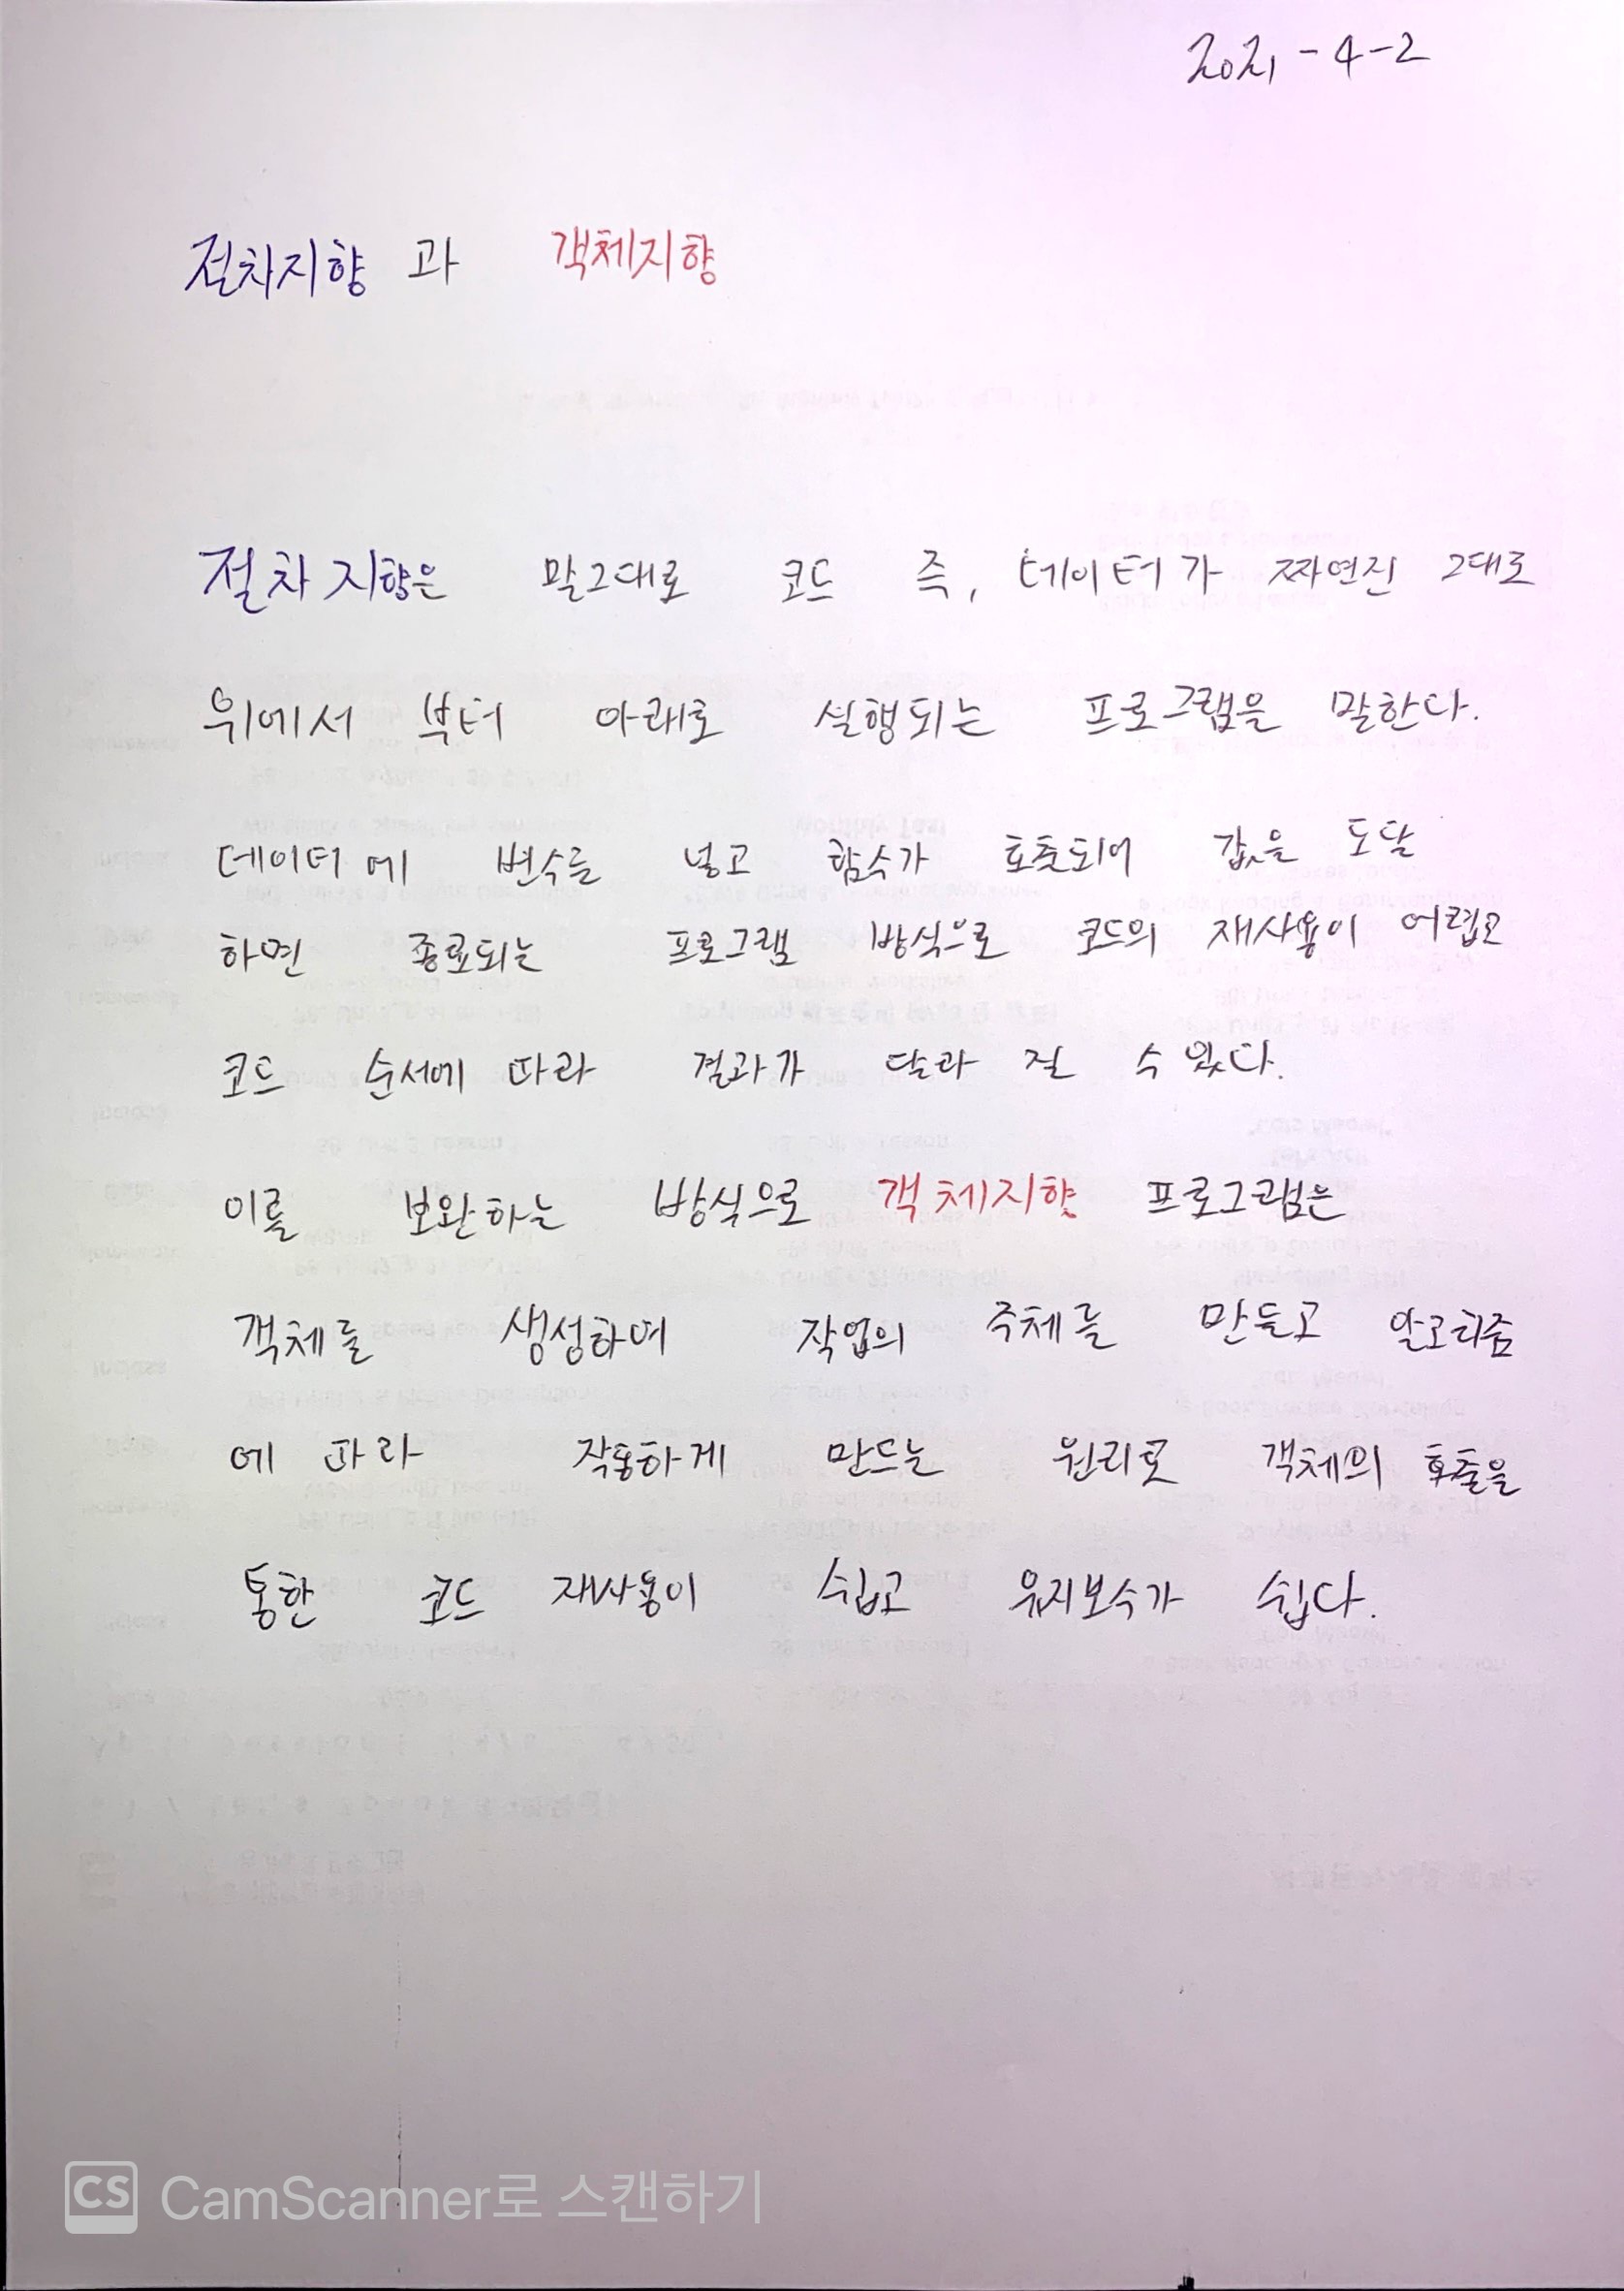 2021-4-2
절차지향 과 객체지향
절차 지향은 말그대로 코드 즉, 데이터가 짜연진 그대로
위에서 부터 아래로 실행되는 프로그램을 말한다.
데이터에 변수를 넣고 함수가 호출되어 값을 도달
하면 종료되는 프로그램 방식으로 코드의 재사용이 어렵고
코드 순서에 따라 결과가 달라 질 수 있다.
이를 보완하는 방식으로 객체지향 프로그램은
객체를 생성하여 작업의 주체를 만들고 알고리즘
에 따라 작동하게 만드는 원리로 객체의 호출을
통한 코드 재사용이 쉽고 유지보수가 쉽다.
CS CamScanner로 스캔하기